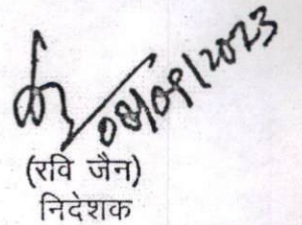 08/09/2023
(रवि जैन)
निदेशक